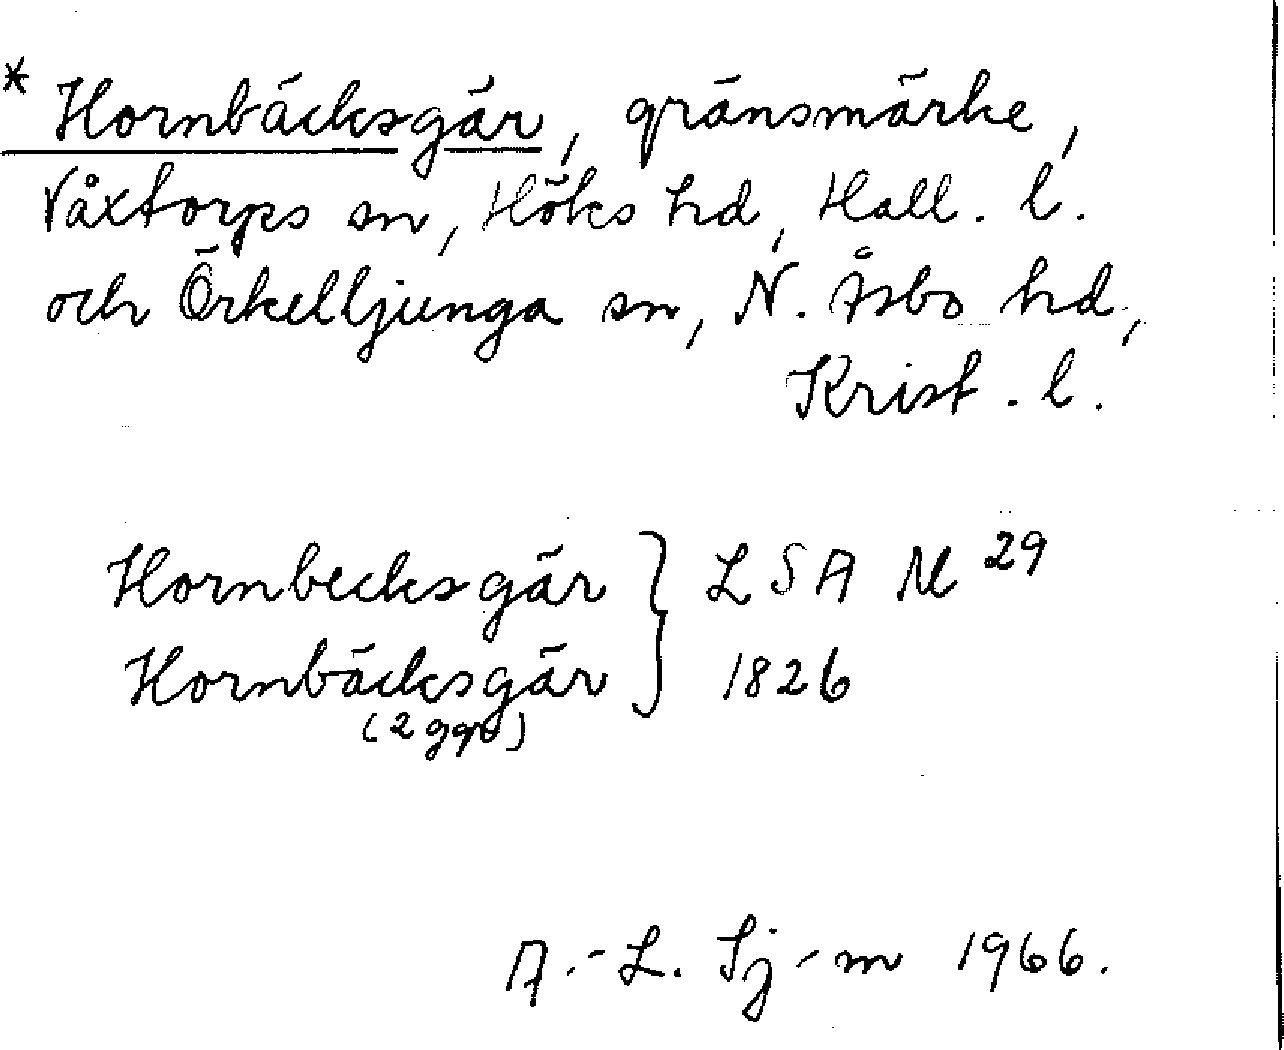 * Hornbäcksgär, gränsmärke,
Våxtorps sn, Höks hd, Hall. l.
och Örkelljunga sn, N. Åsbo hd,
Krist. l.
Hornbecksgär } LSA M 29
Hornbäcksgär } 1826
(2 ggr)
A.-L. Sj-m 1966.